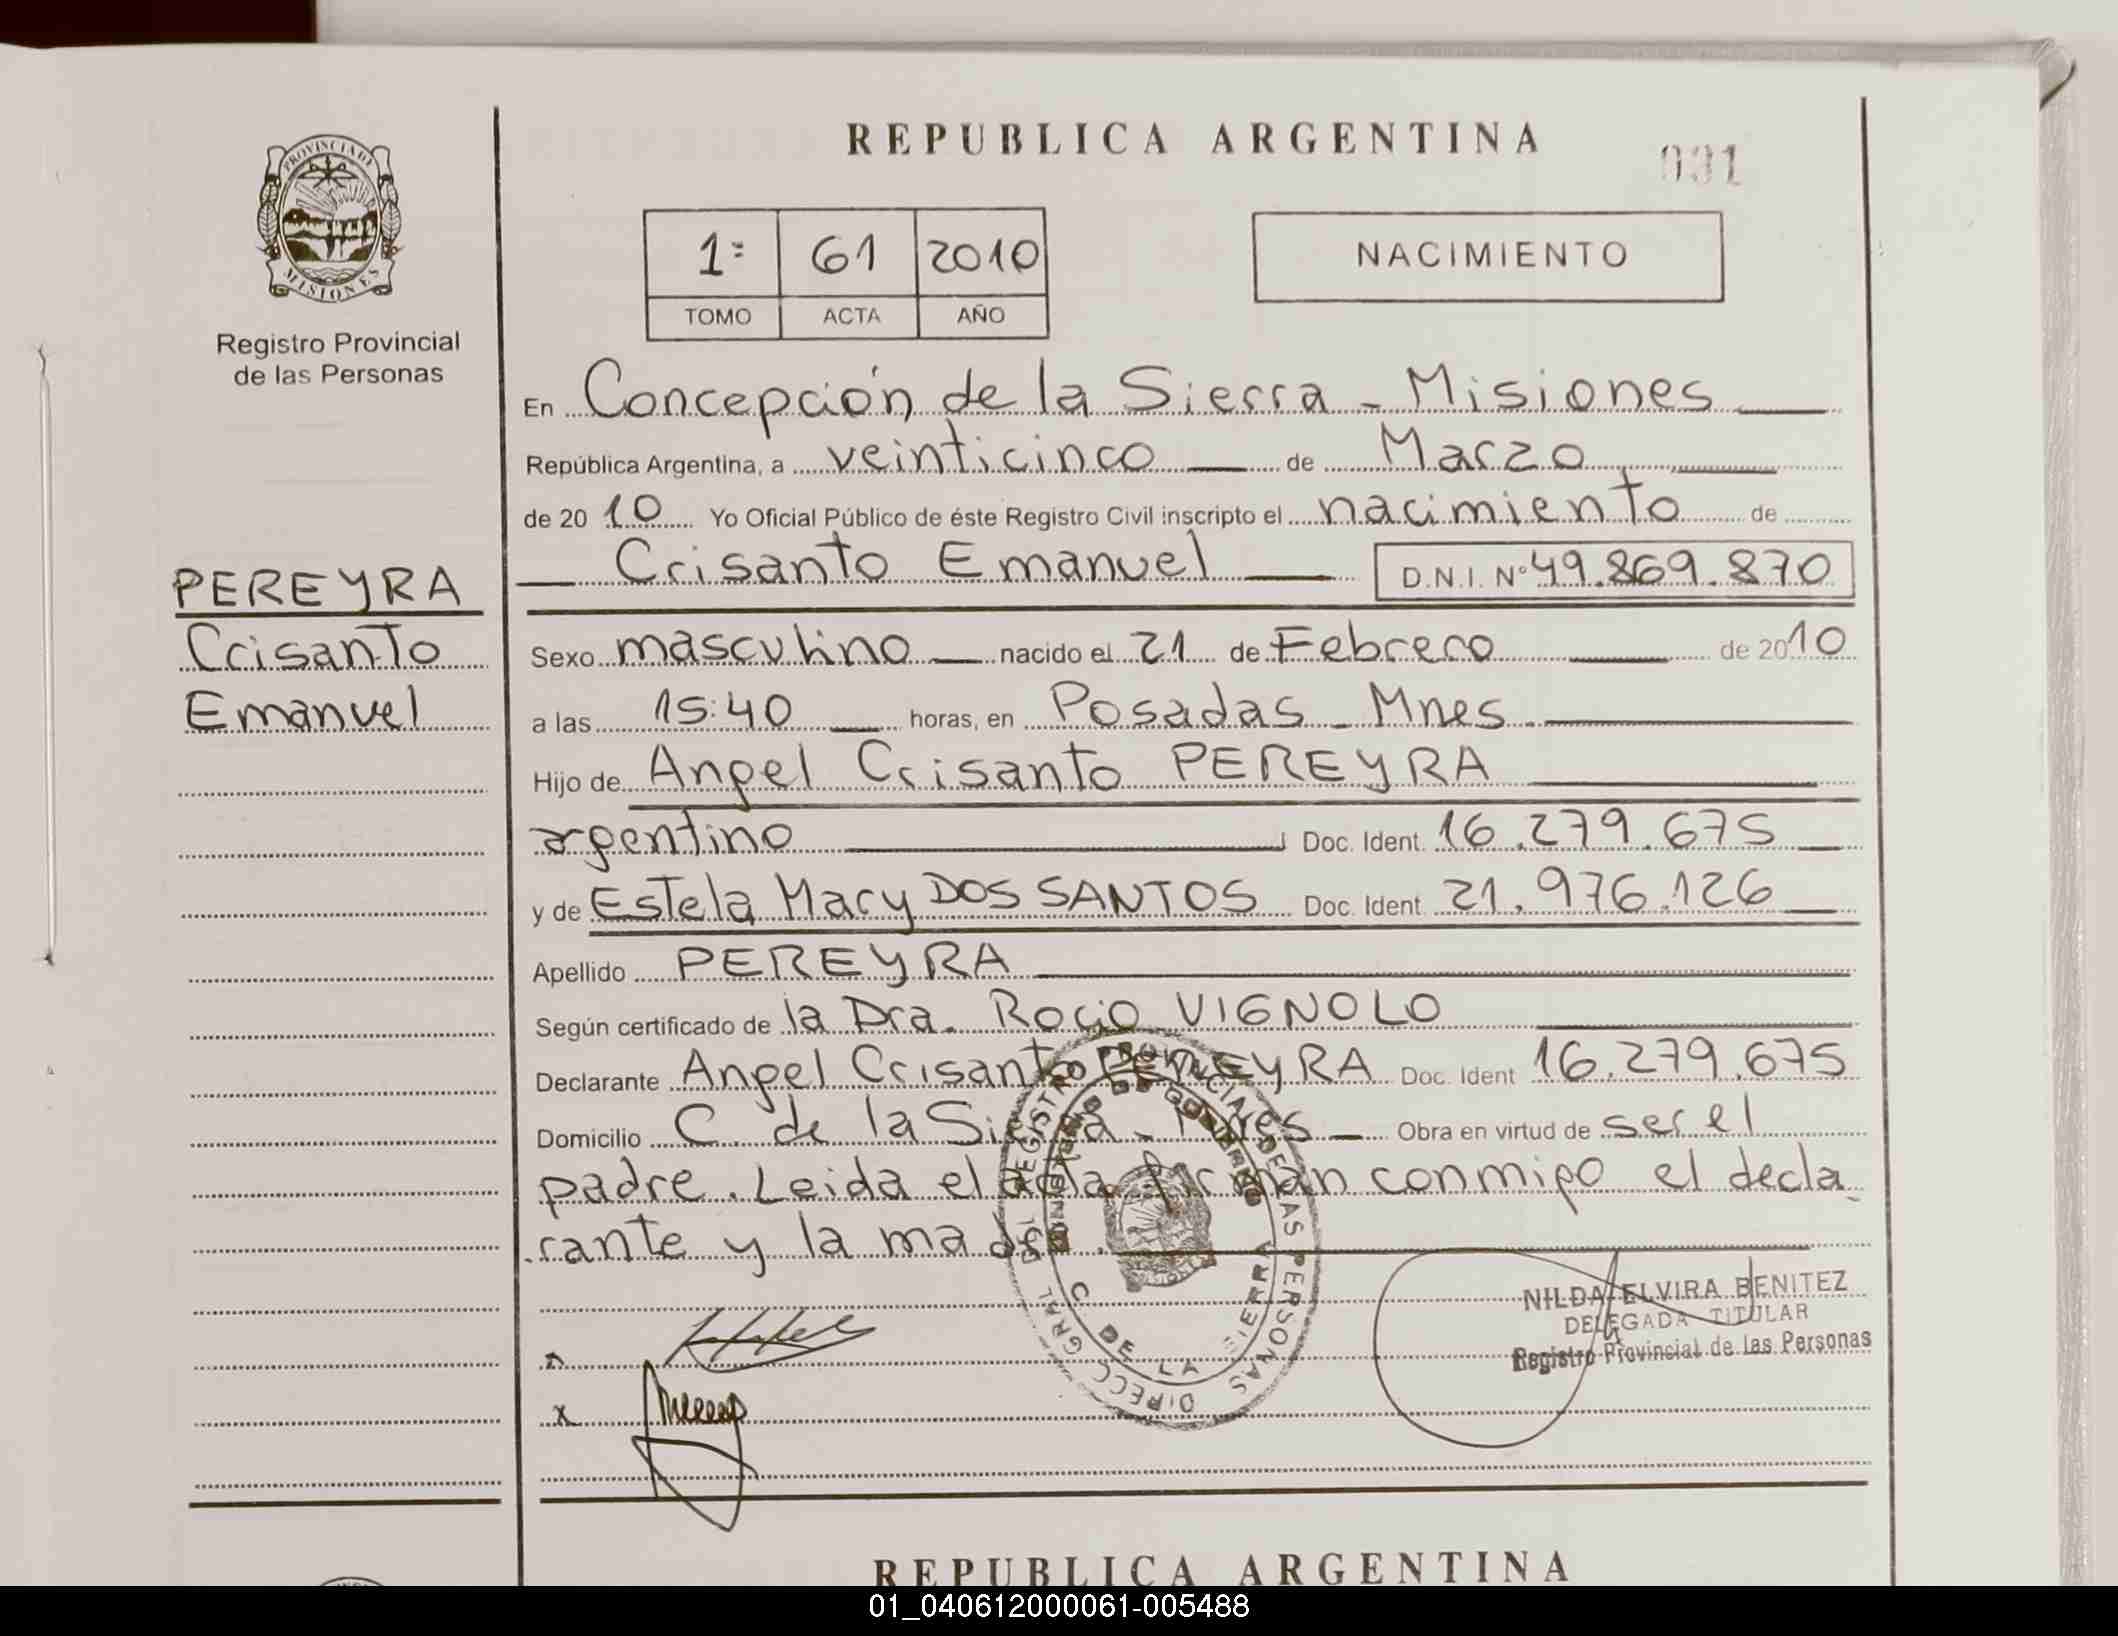 REPUBLICA ARGENTINA
031
PROVINCIA DE
MISIONES
Registro Provincial
de las Personas
1º 61 2010
TOMO ACTA AÑO
NACIMIENTO
En Concepción de la Sierra - Misiones
República Argentina, a veinticinco de Marzo
de 2010 Yo Oficial Público de éste Registro Civil inscripto el nacimiento de
Crisanto Emanuel D.N.I. Nº 49.869.870
PEREYRA
Crisanto
Emanuel
Sexo masculino nacido el 21 de Febrero de 2010
a las 15:40 horas, en Posadas - Mnes
Hijo de Angel Crisanto PEREYRA
argentino Doc. Ident. 16.279.675
y de Estela Mary DOS SANTOS Doc. Ident. 21.976.126
Apellido PEREYRA
Según certificado de la Dra. Rocio VIGNOLO
Declarante Angel Crisanto PEREYRA Doc. Ident 16.279.675
Domicilio C. de la Sierra - Mnes Obra en virtud de ser el
padre. Leida el acta firman conmigo el decla
rante y la madre.
DIRECC. GRAL. DEL REGISTRO PROVINCIAL DE LAS PERSONAS
MINISTERIO DE GOBIERNO
C. DE LA SIERRA
NILDA ELVIRA BENITEZ
DELEGADA TITULAR
Registro Provincial de las Personas
x
REPUBLICA ARGENTINA
01_040612000061-005488